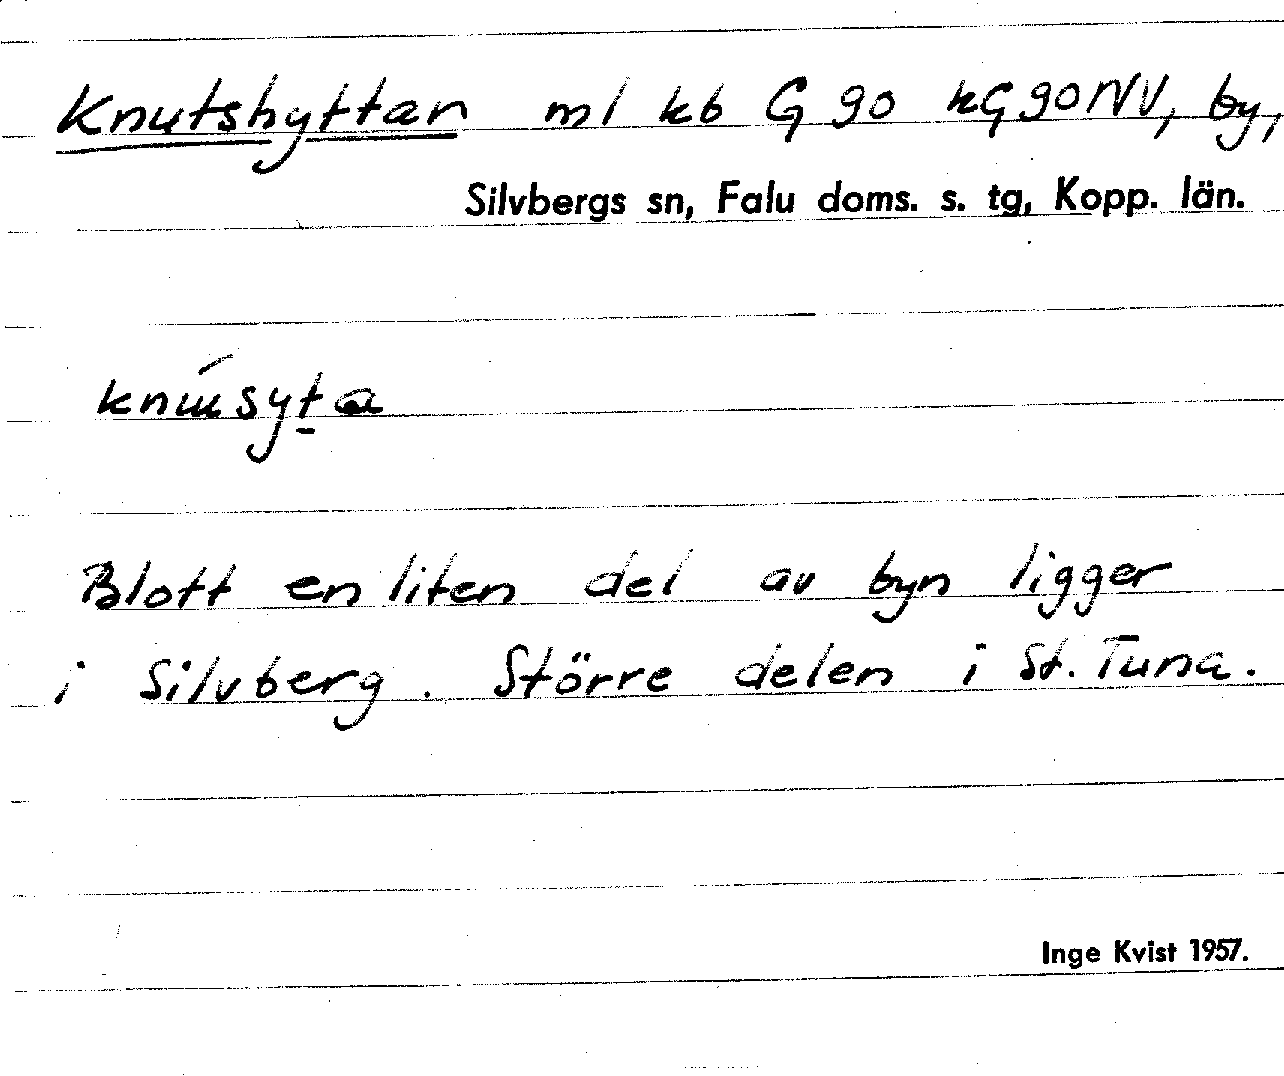 Knutshyttan ml kb G 90 kG 90 NV, by,
Silvbergs sn, Falu doms. s. tg, Kopp. län.
Blott en liten del av byn ligger
i Silvberg. Större delen i St. Tuna.
Inge Kvist 1957.